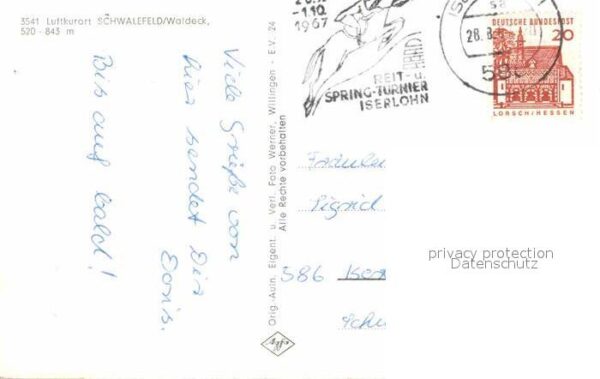 3541 Luftkurort SCHWALEFELD/Waldeck,
520 - 843 m
Viele Grüße von
hier sendet Dir
Doris.
Bis auf bald!
Orig.-Aufn. Eigent. u. Verl. Foto Werner, Willingen - E.V. 24
Alle Rechte vorbehalten
Agfa
-1.10.
1967
REIT- u.
SPRING-TURNIER
ISERLOHN
28.8.
58
DEUTSCHE BUNDESPOST
20
LORSCH/HESSEN
Fräulei
Sigrid
586 Iser
Schu
privacy protection
Datenschutz